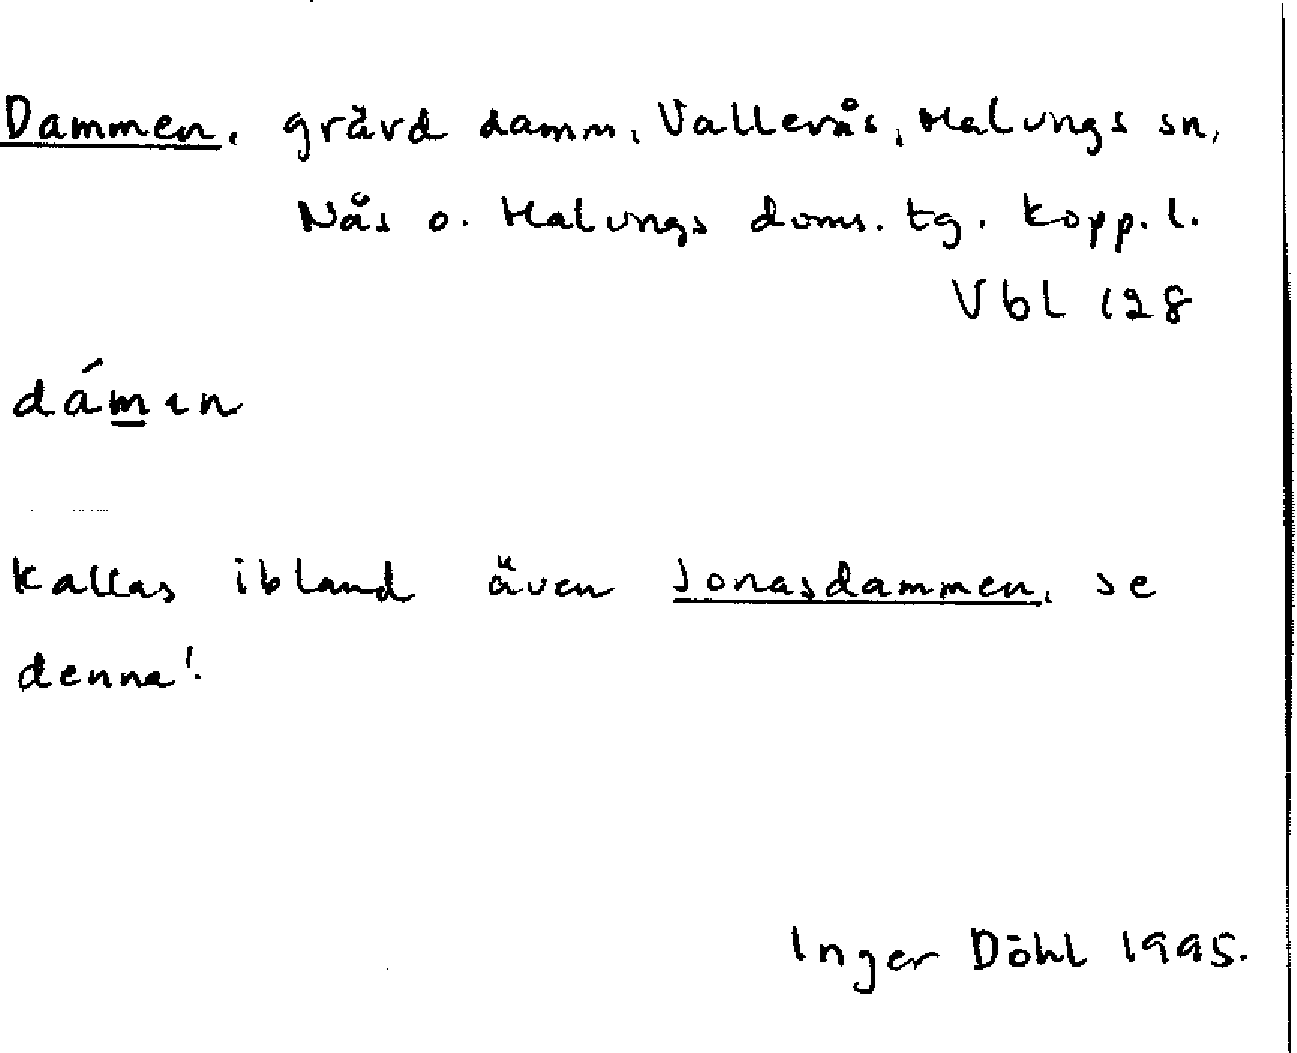 Dammen, grävd damm, Vallerås, Malungs sn,
Nås o. Malungs doms. tg. Kopp. l.
Vbl 128
dám̲ın
Kallas ibland även Jonasdammen, se
denna!
Inger Döhl 1995.